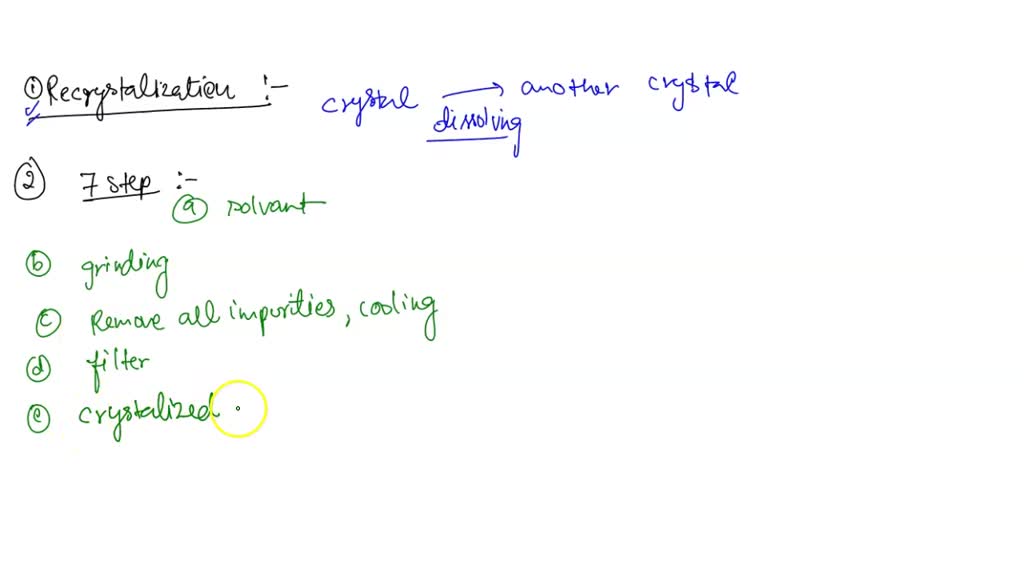 ① Recrystalization :- crystal → another crystal
dissolving
② 7 step :-
ⓐ solvant
ⓑ grinding
ⓒ Remove all impurities, cooling
ⓓ filter
ⓔ crystalized